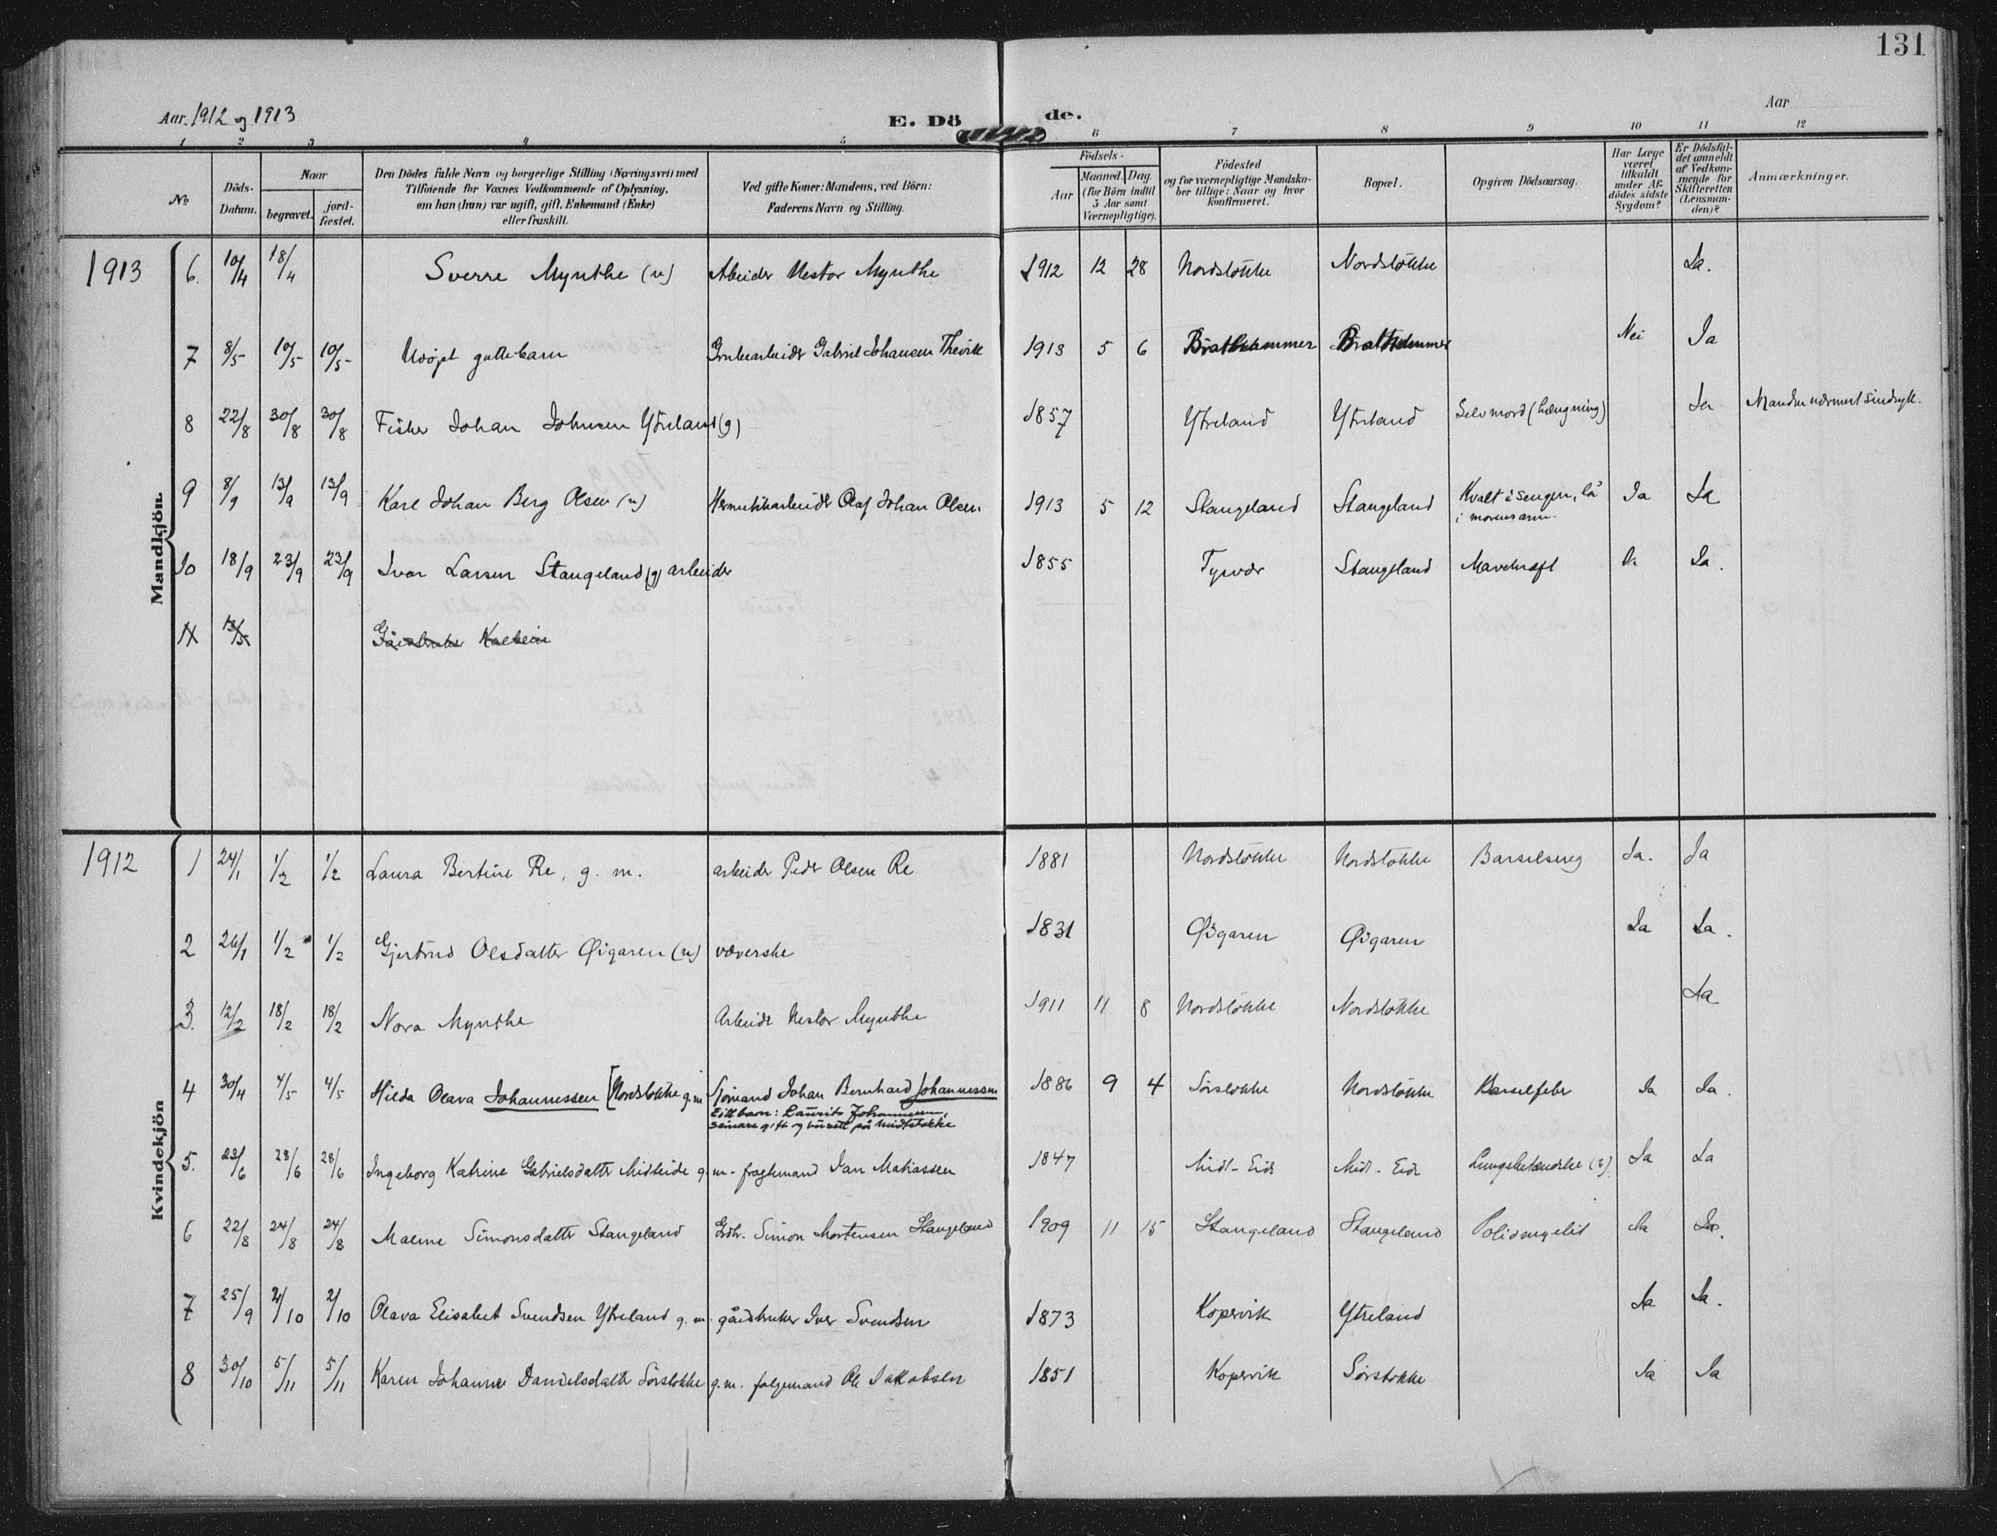 131
Aar 1912 og 1913
E. Dö de.
Aar
1 2 3 4 5 6 7 8 9 10 11 12
No
Döds-Datum.
Naar
begravet.
jord-fæstet.
Den Dödes fulde Navn og borgerlige Stilling (Næringsvei) med
Tilföiende for Voxnes Vedkommende af Oplysning,
om han (hun) var ugift, gift, Enkemand (Enke)
eller fraskilt.
Ved gifte Koner: Mandens, ved Börn:
Faderens Navn og Stilling.
Födsels-
Aar
Maaned. Dag.
(for Börn indtil
5 Aar samt
Værnepligtige).
Födested
og for værnepligtige Mandska-
ber tillige: Naar og hvor
konfirmeret.
Bopæl.
Opgiven Dödsaarsag.
Har Læge
været
tilkaldt
under Af-
dödes sidste
Sygdom?
Er Dödsfal-
det anmeldt
af Vedkom-
mende for
Skifteretten
(Lensman-
den)?
Anmærkninger.
Mandkjön
1913 6. 10/4 18/4 Sverre Mynthe (u) Arbeider Nestor Mynthe 1912 12 28 Nordstökke Nordstökke Ja.
7 8/5 10/5 10/5 Udöpt guttebarn Grubearbeider Gabriel Johansen 1913 5 6 Bratthammer Bratthammer Nei Ja
8 22/8 30/8 30/8 Fisker Johan Johnsen Ytreland (g) 1857 Ytreland Ytreland Selvmord (hængning) Ja Manden nærmest sindsyk.
9 8/9 13/9 13/9 Karl Johan Berg Olsen (u) Hermetikkarbeider Olaf Johan Olsen 1913 5 12 Stangeland Stangeland Kvalt i sengen, lå
i morens arm. Ja Ja
10 18/9 23/9 23/9 Ivar Larsen Stangeland (g) arbeider 1855 Tysvær Stangeland Mavekræft Ja Ja.
11 13/5 Gårdbruker
Kvindekjön
1912 1 24/1 1/2 1/2 Laura Bertine Re, g. m. arbeider Peder Olsen Re 1881 Nordstökke Nordstökke Barselseng Ja. Ja
2 26/1 1/2 1/2 Gjertrud Olsdatter Øigaren (u) væverske 1831 Øigaren Øigaren Ja Ja.
3. 12/2 18/2 18/2 Nora Mynthe Arbeider Nestor Mynthe 1911 11 8 Nordstökke Nordstökke Ja
4 30/4 4/5 4/5 Hilda Olava Johannessen [Nordstokke g.m. Sjømand Johan Bernhard Johannessen
Eitt barn: Laurits Johannessen,
seinare gift og busett på Midtstokke
1886 9 4 Sörstokke Nordstökke Barselfeber Ja Ja.
5. 23/6 28/6 28/6 Ingeborg Katrine Gabrielsdatter Midteide g. m. Jan Matiassen 1847 Midt-Eide Midt-Eide Lungebetændelse (?). Ja Ja
6 22/8 24/8 24/8 Malene Simonsdatter Stangeland Grdbr. Simon Mortensen Stangeland 1909 11 15 Stangeland Stangeland Poliomyelit Ja Ja.
7 25/9 2/10 2/10 Olava Elisabet Svendsen Ytreland g. m. gårdbruker Iver Svendsen 1873 Kopervik Ytreland Ja Ja.
8 30/10 5/11 5/11 Karen Johanne Danielsdatter Sörstokke g. m. Ole Jakobsen 1851 Kopervik Sörstokke Ja Ja